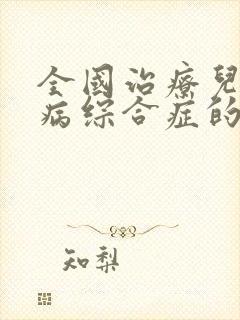 全國治療兒
病综合症的
知梨